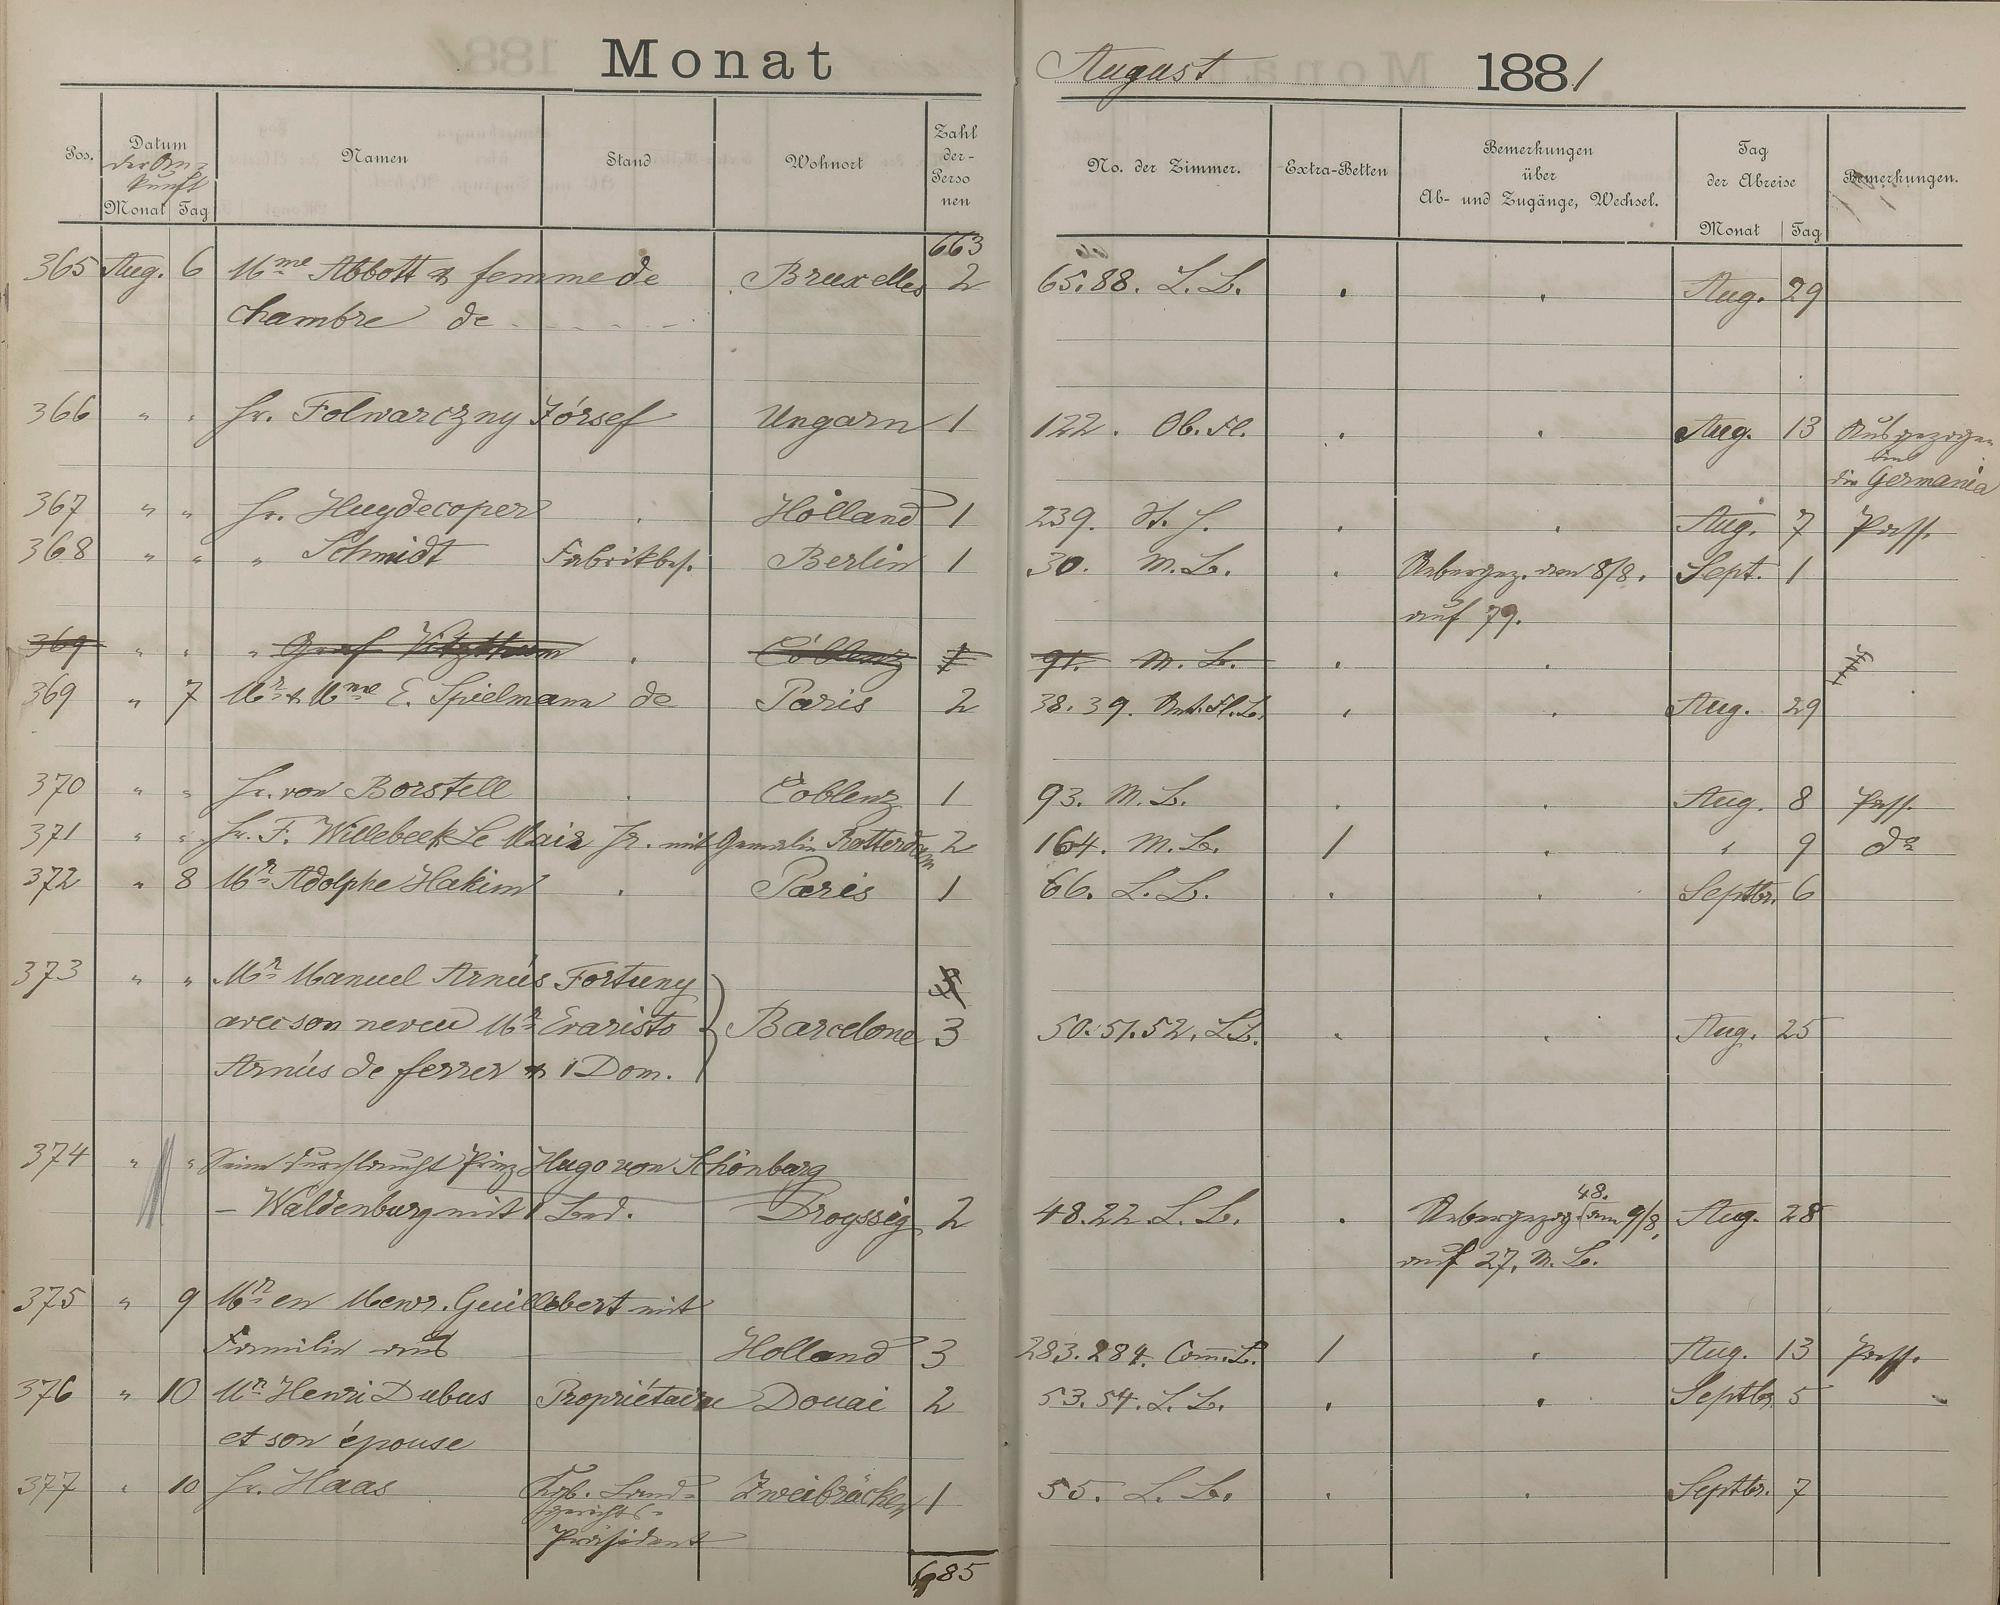 Monat
August 1881
Pos.
Datum
der An-
kunft
Monat Tag
Namen
Stand
Wohnort
Zahl
der-
Perso
nen
No. der Zimmer.
Extra-Betten
Bemerkungen
über
Ab- und Zugänge, Wechsel.
Tag
der Abreise
Monat Tag
Bemerkungen.
663
365 Aug. 6 Mme Abbott & femme de Bruxelles 2 65.88. L. B. . . Aug. 29
chambre de
366 " " Hr. Folwarczny József Ungarn 1 122. Ob. Fl. . . Aug. 13 Ausgezogen
in
die Germania
367 " " Hr. Huydecoper . Holland 1 239. St. H. . . Aug. 7 Pass.
368 " " " Schmidt Fabrikbes. Berlin 1 30. M. B. . Uebergez. am 8/8. Sept. 1
auf 79.
369 " " " Graf Vitzthum . Coblenz 1 91. M. B. . .
369 " 7 Mr & Mme E. Spielmann de Paris 2 38.39. Unt. Fl. B. . . Aug. 29
370 " " Hr. von Borstell . Coblenz 1 93. M. B. . . Aug. 8 Pass.
371 " " Hr. F. Willebeek Le Mair Jr. mit Gemalin Rotterdam 2 164. M. B. 1 . " 9 do
372 " 8 Mr Adolphe Hakim . Paris 1 66. L. B. . . Septbr. 6
373 " " Mr Manuel Arnús Fortuny 3
avec son neveu Mr Evaristo Barcelone 3 50.51.52. L.B. . . Aug. 25
Arnús de ferrer & 1 Dom.
374 " " Seine Durchlaucht Prinz Hugo von Schönburg
- Waldenburg mit 1 Bed. Droyssig 2 48.22. L. B. . Uebergezog. 48. am 9/8. Aug. 28
auf 27. M. B.
375 " 9 Mr en Mevr. Guillebert mit
Familie aus Holland 3 283.284. Com. B. 1 . Aug. 13 Pass.
376 " 10 Mr Henri Dubus Propriétaire Douai 2 53.54. L. B. . . Septbr. 5
et son épouse
377 " 10 Hr. Haas Kgb. Land- Zweibrücken 1 55. L. B. . . Septbr. 7
gerichts-
Präsident
685